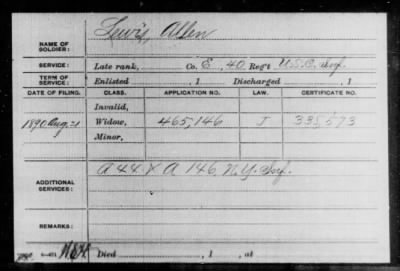 Lewis, Allen
NAME OF
SOLDIER:
SERVICE: Late rank, Co. E, 40 Reg't U.S.C. Inf.
TERM OF
SERVICE: Enlisted , 1 Discharged , 1
DATE OF FILING. CLASS. APPLICATION NO. LAW. CERTIFICATE NO.
Invalid,
1890 Aug. 21 Widow, 465,146 J 335,573
Minor,
A 44 & A 146, N.Y. Inf.
ADDITIONAL
SERVICES:
REMARKS:
Died , 1 , at